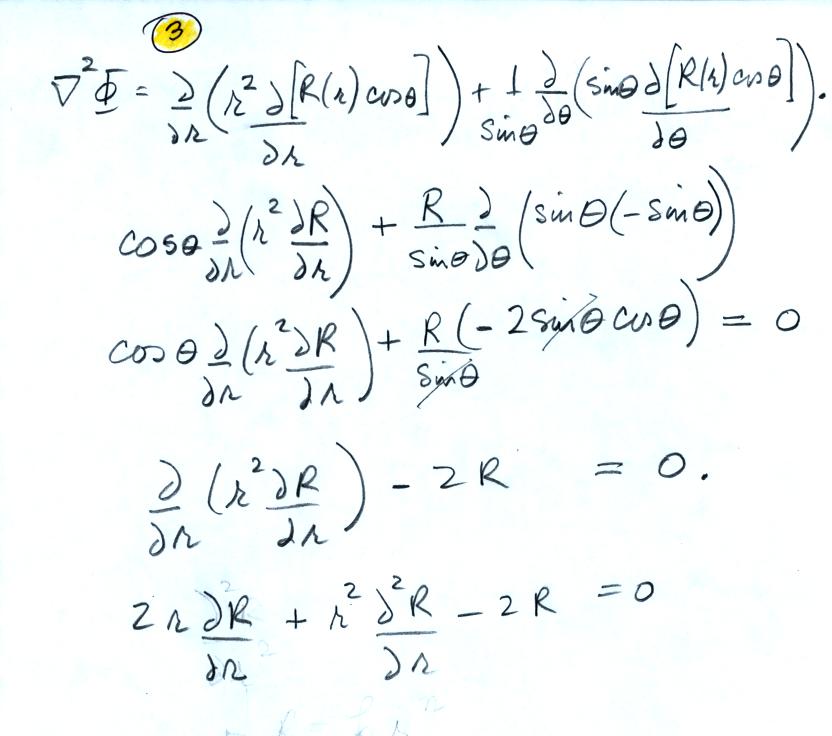 3
∇²Φ = ∂/∂r (r² ∂[R(r) cosθ]/∂r) + 1/sinθ ∂/∂θ (sinθ ∂[R(r) cosθ]/∂θ).
cosθ ∂/∂r (r² ∂R/∂r) + R/sinθ ∂/∂θ (sinθ(-sinθ))
cosθ ∂/∂r (r² ∂R/∂r) + R/sinθ (-2sinθ cosθ) = 0
∂/∂r (r² ∂R/∂r) - 2R = 0.
2r ∂R/∂r + r² ∂²R/∂r - 2R = 0